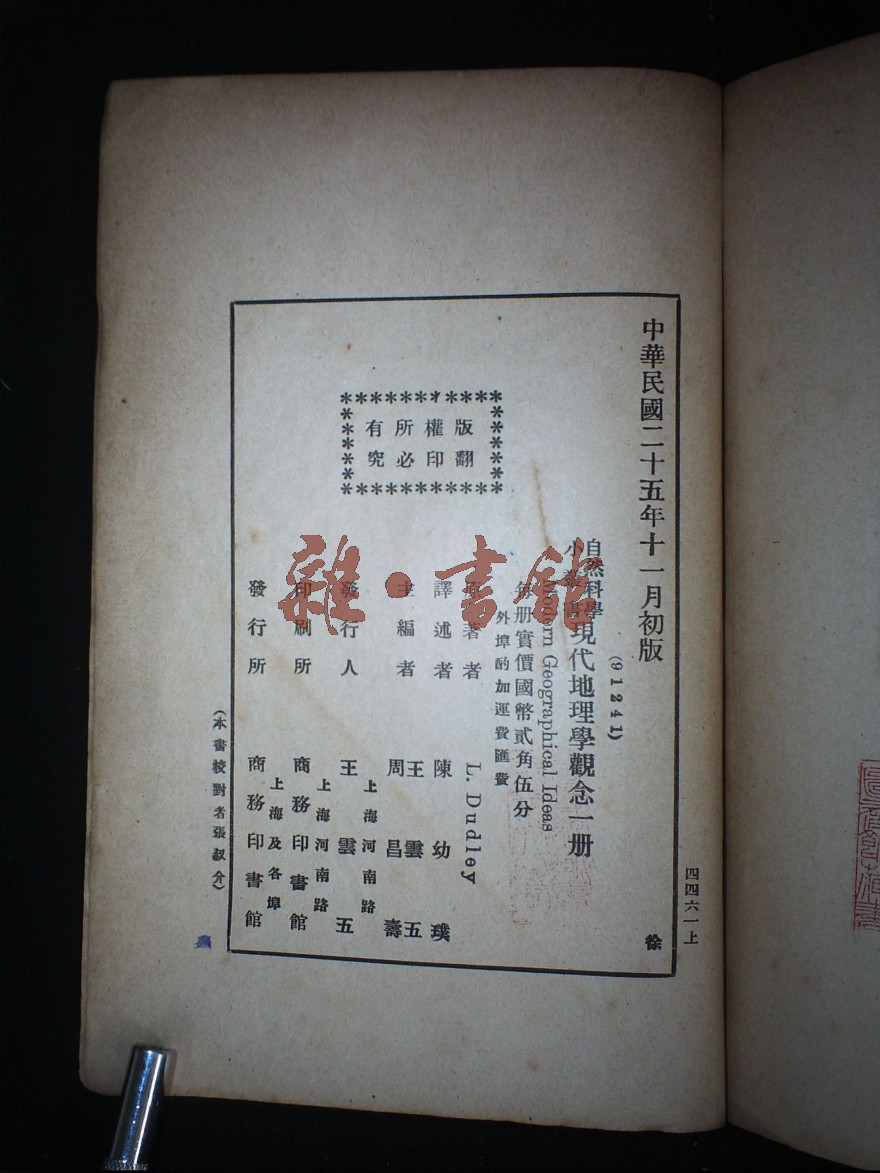 中華民國二十五年十一月初版
(91241)
自然科學
小叢書
現代地理學觀念一册
Modern Geographical Ideas
每册實價國幣貳角伍分
外埠酌加運費匯費
版權所有
翻印必究
原著者 L. Dudley
譯述者 陳幼璞
主編者 王雲五
周昌壽
發行人 王雲五
上海河南路
印刷所 商務印書館
上海河南路
發行所 商務印書館
上海及各埠
(本書校對者張叔介)
四四六一上
徐
雜·書館